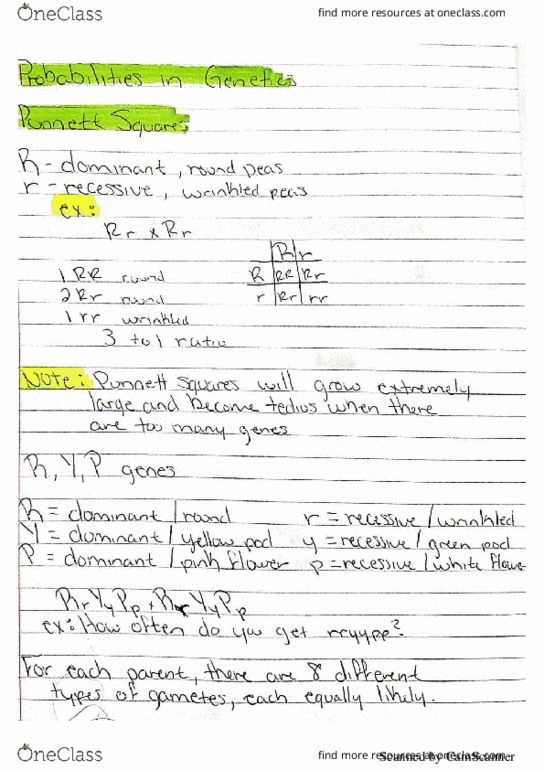 OneClass find more resources at oneclass.com
Probabilities in Genetics
Punnett Squares
R - dominant, round peas
r - recessive, wrinkled peas
ex:
Rr x Rr
R r
1 RR round R RR Rr
2 Rr round r Rr rr
1 rr wrinkled
3 to 1 ratio
Note: Punnett squares will grow extremely
large and become tedius when there
are too many genes
R, Y, P genes
R = dominant / round r = recessive / wrinkled
Y = dominant / yellow pod y = recessive / green pod
P = dominant / pink flower p = recessive / white flower
RrYyPp x RrYyPp
ex: How often do you get rryypp?
For each parent, there are 8 different
types of gametes, each equally likely.
OneClass find more resources at oneclass.com
Scanned by CamScanner